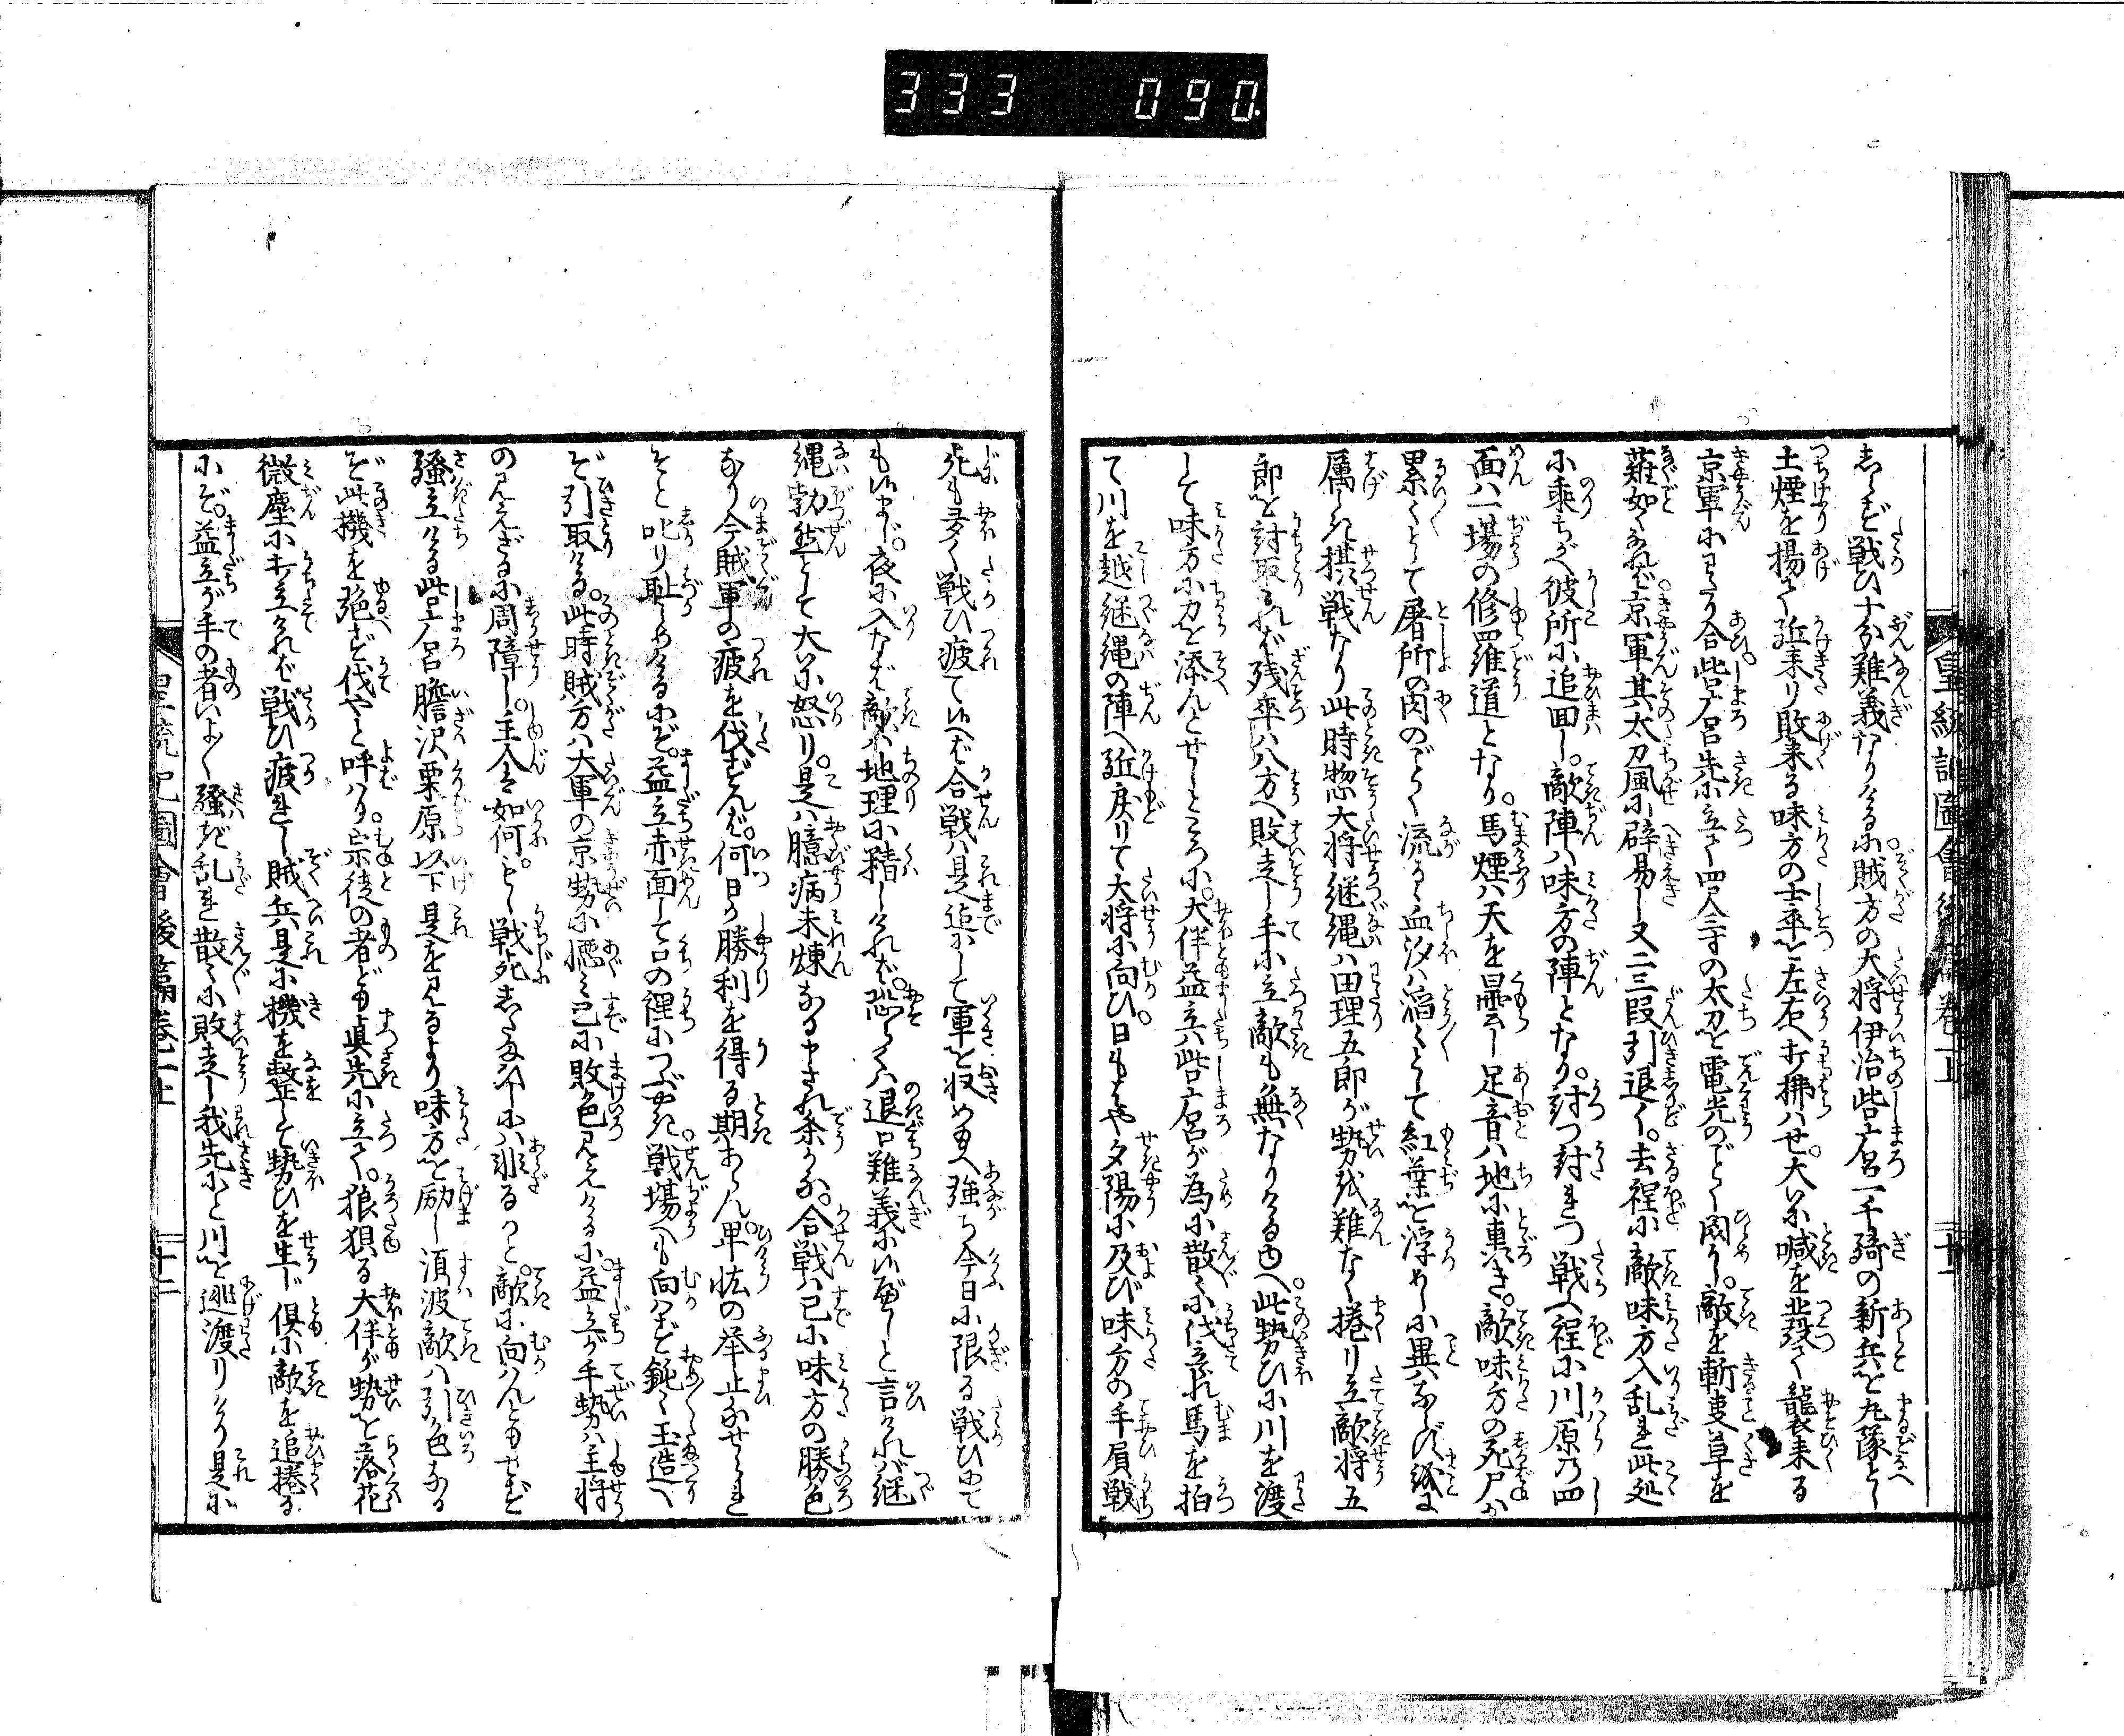 333 090
皇統記圖會後篇卷一上
十一
志らず戦ひ十分難義なりける小。賊方の大将伊治呰麻呂一千騎の新兵を九隊とし
土煙を揚て迯来り敗来る味方の士卒を左右へ打拂ハせ。大い小喊を発て襲来る
京軍小わたり合呰麻呂先小立て四尺三寸の太刀を電光のごとく閃し。敵を斬事草を
薙如くなれバ。京軍其太刀風小辟易し又二三段引退く。去程小敵味方入乱れ此処
小乗ちがへ彼所小追回し。敵陣ハ味方の陣となり。討つ討れつ戦ふ程小川原乃四
面ハ一場の修羅道となり。馬煙ハ天を曇し足音ハ地小轟き。敵味方の死尸ハ
累々として屠所の肉のごとく流るゝ血汐ハ滔々として紅葉を浮めし小異ならず
属しき挑戦なり此時惣大将継縄ハ田理五郎が勢を難なく捲り立敵将五
郎を討取けれバ残卒ハ八方へ敗走し手小立敵も無なりける由へ。此勢ひ小川を渡
して味方小力を添んとせしところ小。大伴益立ハ呰麻呂が為小散々小伐立られ馬を拍
て川を越継縄の陣へ迯戻りて大将小向ひ。日もはや夕陽小及び味方の手負戦
死も多く戦ひ疲て候へバ合戦ハ是迄小して軍を収め給へ強ち今日小限る戦ひ小て
も候まじ。夜小入なバ敵ハ地理小精しけれバ。恐らくハ退口難義小候べしと言けれバ継
縄勃然として大い小怒り。是ハ臆病未煉なる申され条かな。合戦ハ已小味方の勝色
なり今賊軍の疲を伐ずんバ。何日か勝利を得る期あらん。卑怯の挙止なせられ
そと叱り耻しめける小ぞ。益立赤面して口の裡小つぶやき。戦場へも向ハず鈍々玉造へ
ぞ引取ける。此時賊方ハ大軍の京勢小懲ミ已小敗色見えける小。益立が手勢ハ主将
の見えざる小周障し。主人ハ如何。もし戦死したまひしに小ハ非るかと。敵小向ハんともせず
騒立ける呰麻呂膽沢栗原以下是を見るより味方を励し須波敵ハ引色なる
ぞ此機を弛ず伐やと呼ハり。宗徒の者ども真先小立て。狼狽る大伴が勢を落花
微塵小打立けれバ戦ひ疲れし賊兵是小機を整して勢ひを生じ倶小敵を追捲る
小ぞ。益立が手の者いよ〱騒ぎ乱れ散々小敗走し我先小と川を逃渡りけり是小
皇統記圖會後篇卷一上
十二